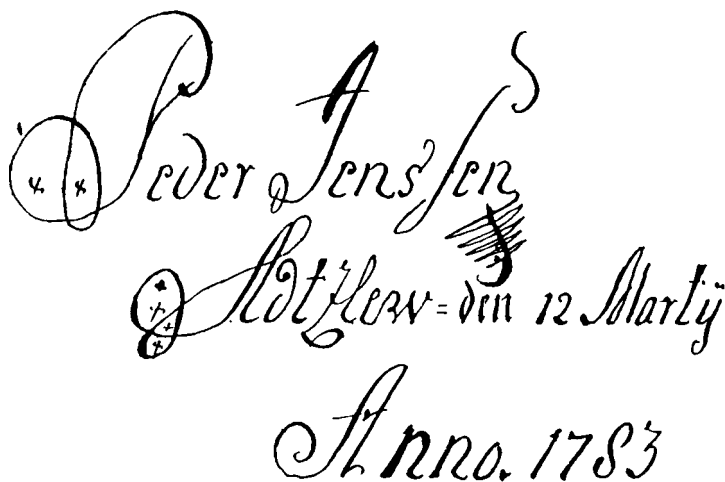 Peder Jenssen
den 12 Martij
Anno. 1783